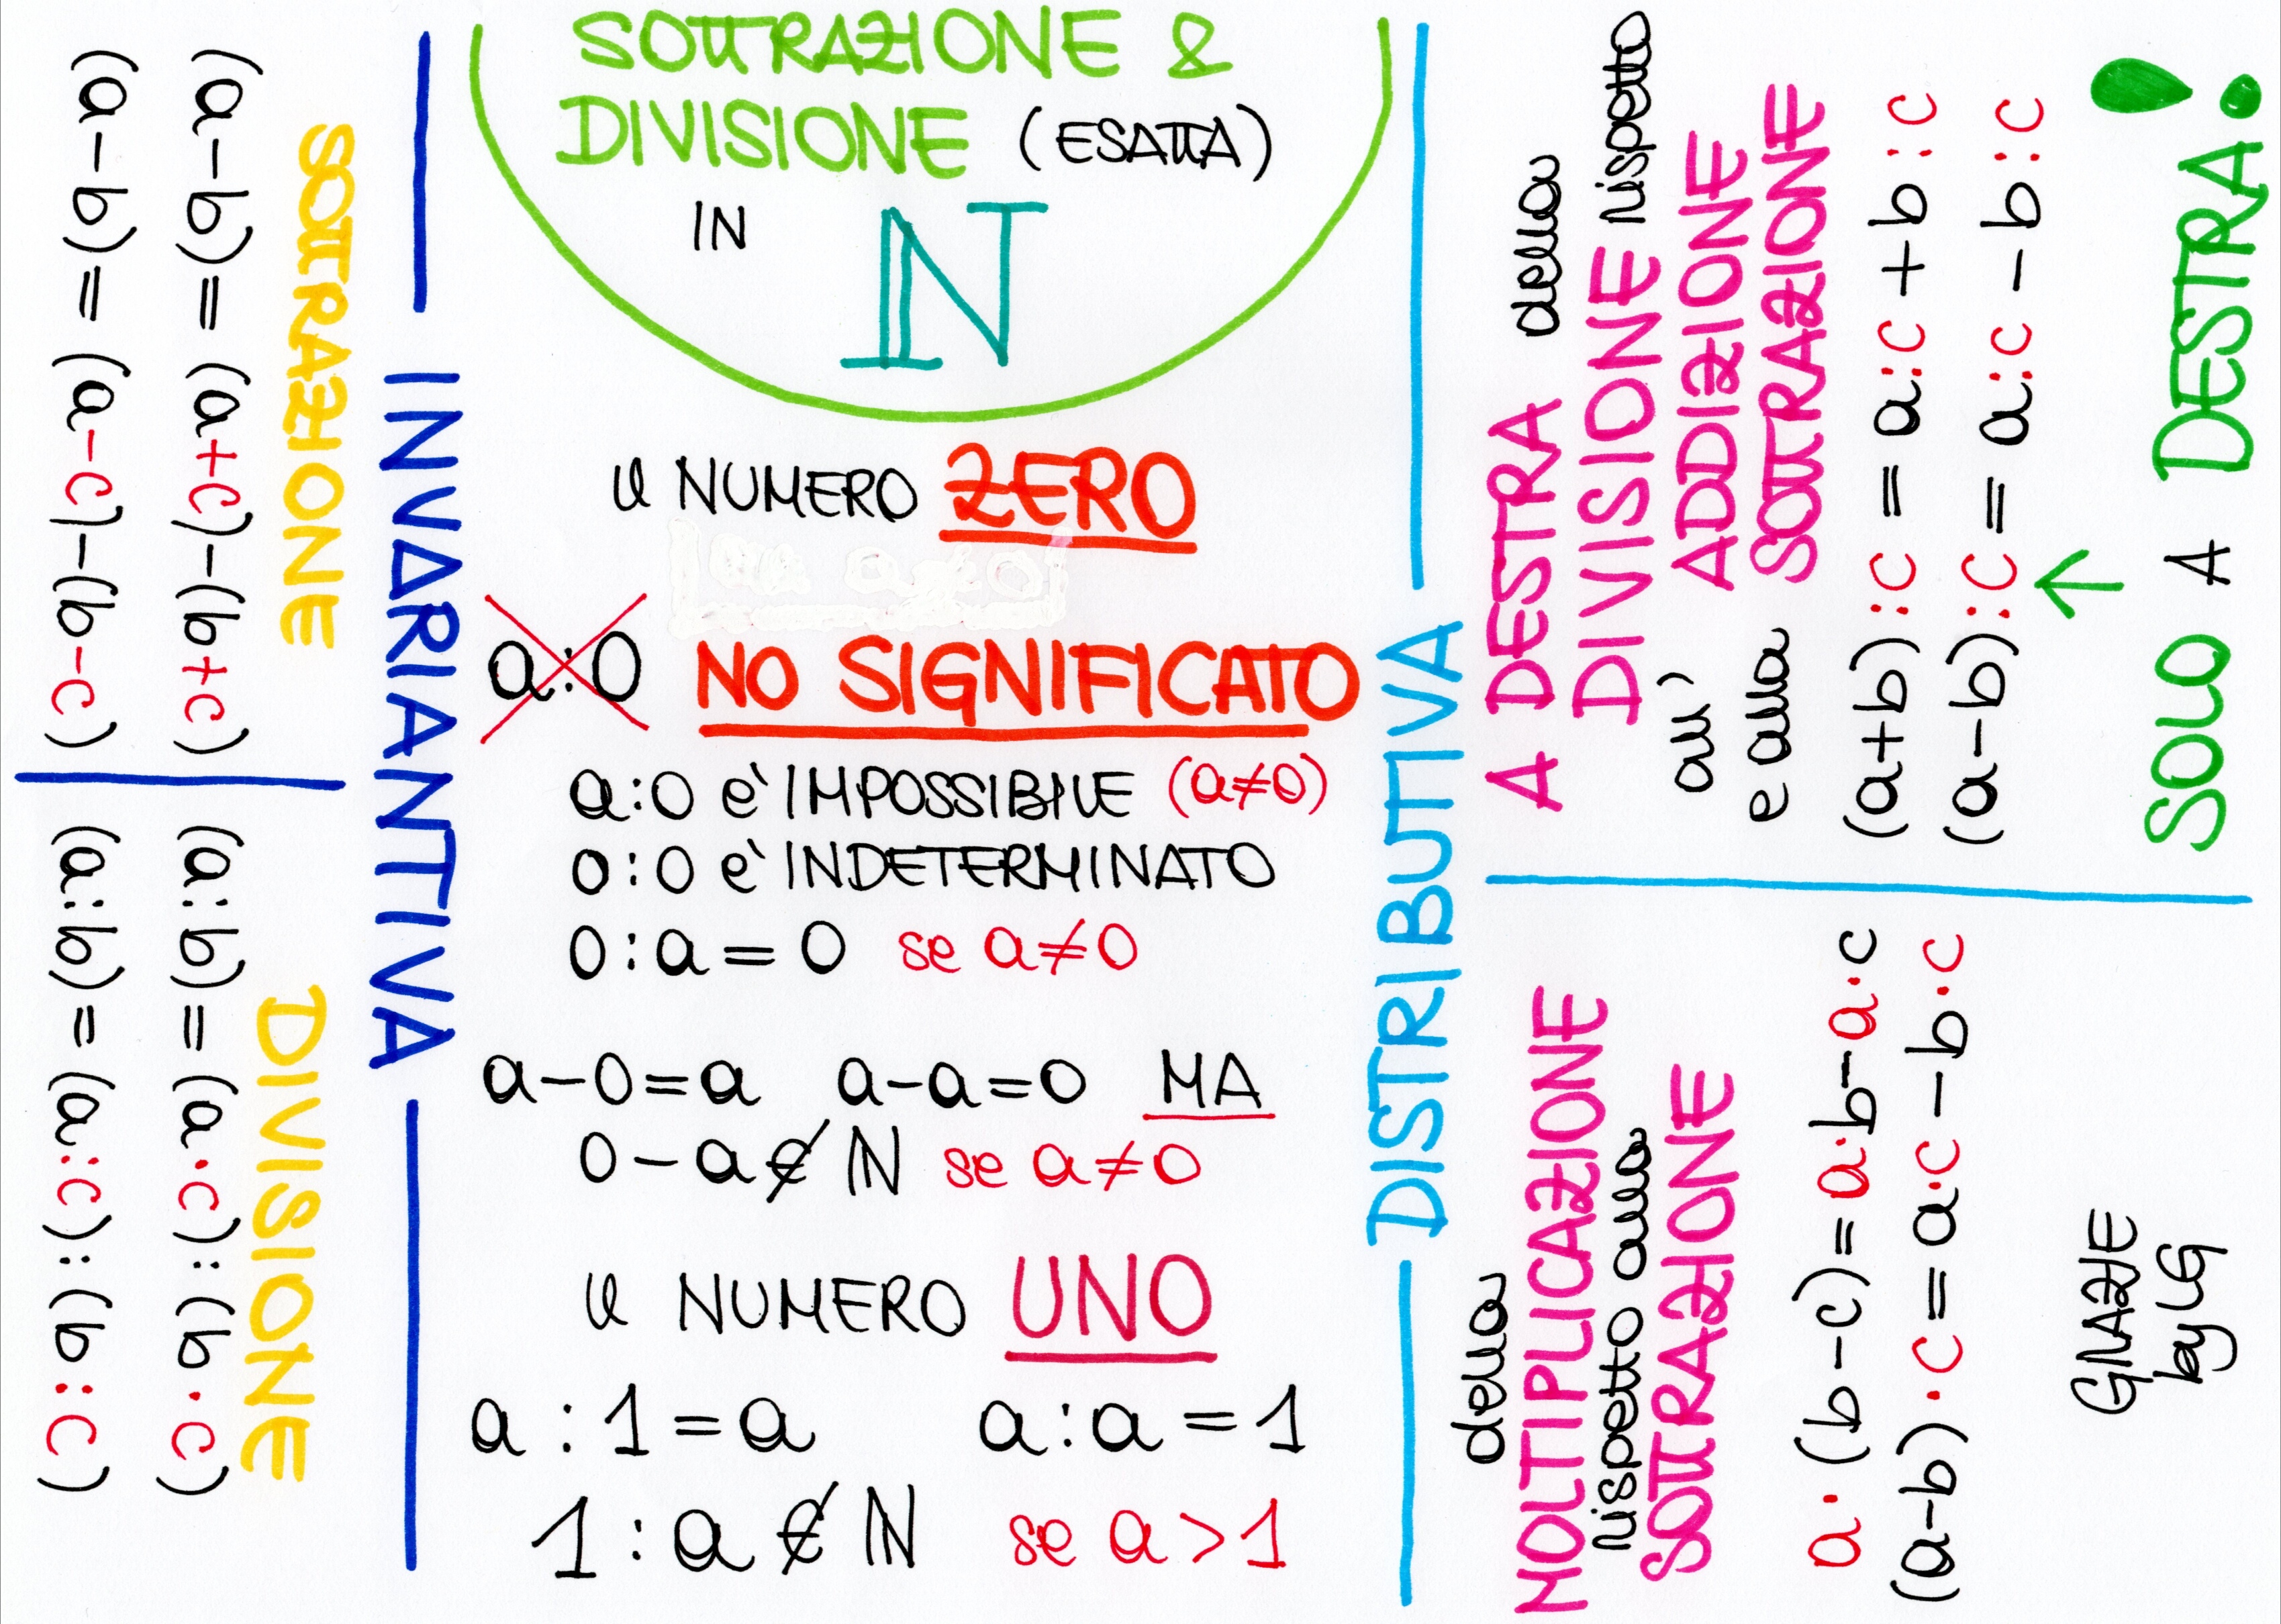 SOTTRAZIONE &
DIVISIONE (ESATTA)
IN ℕ
il NUMERO ZERO
a:0 NO SIGNIFICATO
a:0 e' IMPOSSIBILE (a≠0)
0:0 e' INDETERMINATO
0:a=0 se a≠0
a-0=a a-a=0 MA
0-a∉ℕ se a≠0
il NUMERO UNO
a:1=a a:a=1
1:a∉ℕ se a>1
INVARIANTIVA
SOTTRAZIONE
(a-b)=(a+c)-(b+c)
(a-b)=(a-c)-(b-c)
DIVISIONE
(a:b)=(a·c):(b·c)
(a:b)=(a:c):(b:c)
DISTRIBUTIVA
della
MOLTIPLICAZIONE
rispetto alla
SOTTRAZIONE
a·(b-c)=a·b-a·c
(a-b)·c=a·c-b·c
A DESTRA della
DIVISIONE rispetto
all' ADDIZIONE
e alla SOTTRAZIONE
(a+b):c=a:c+b:c
(a-b):c=a:c-b:c
SOLO A DESTRA!
GRAZIE
by LG